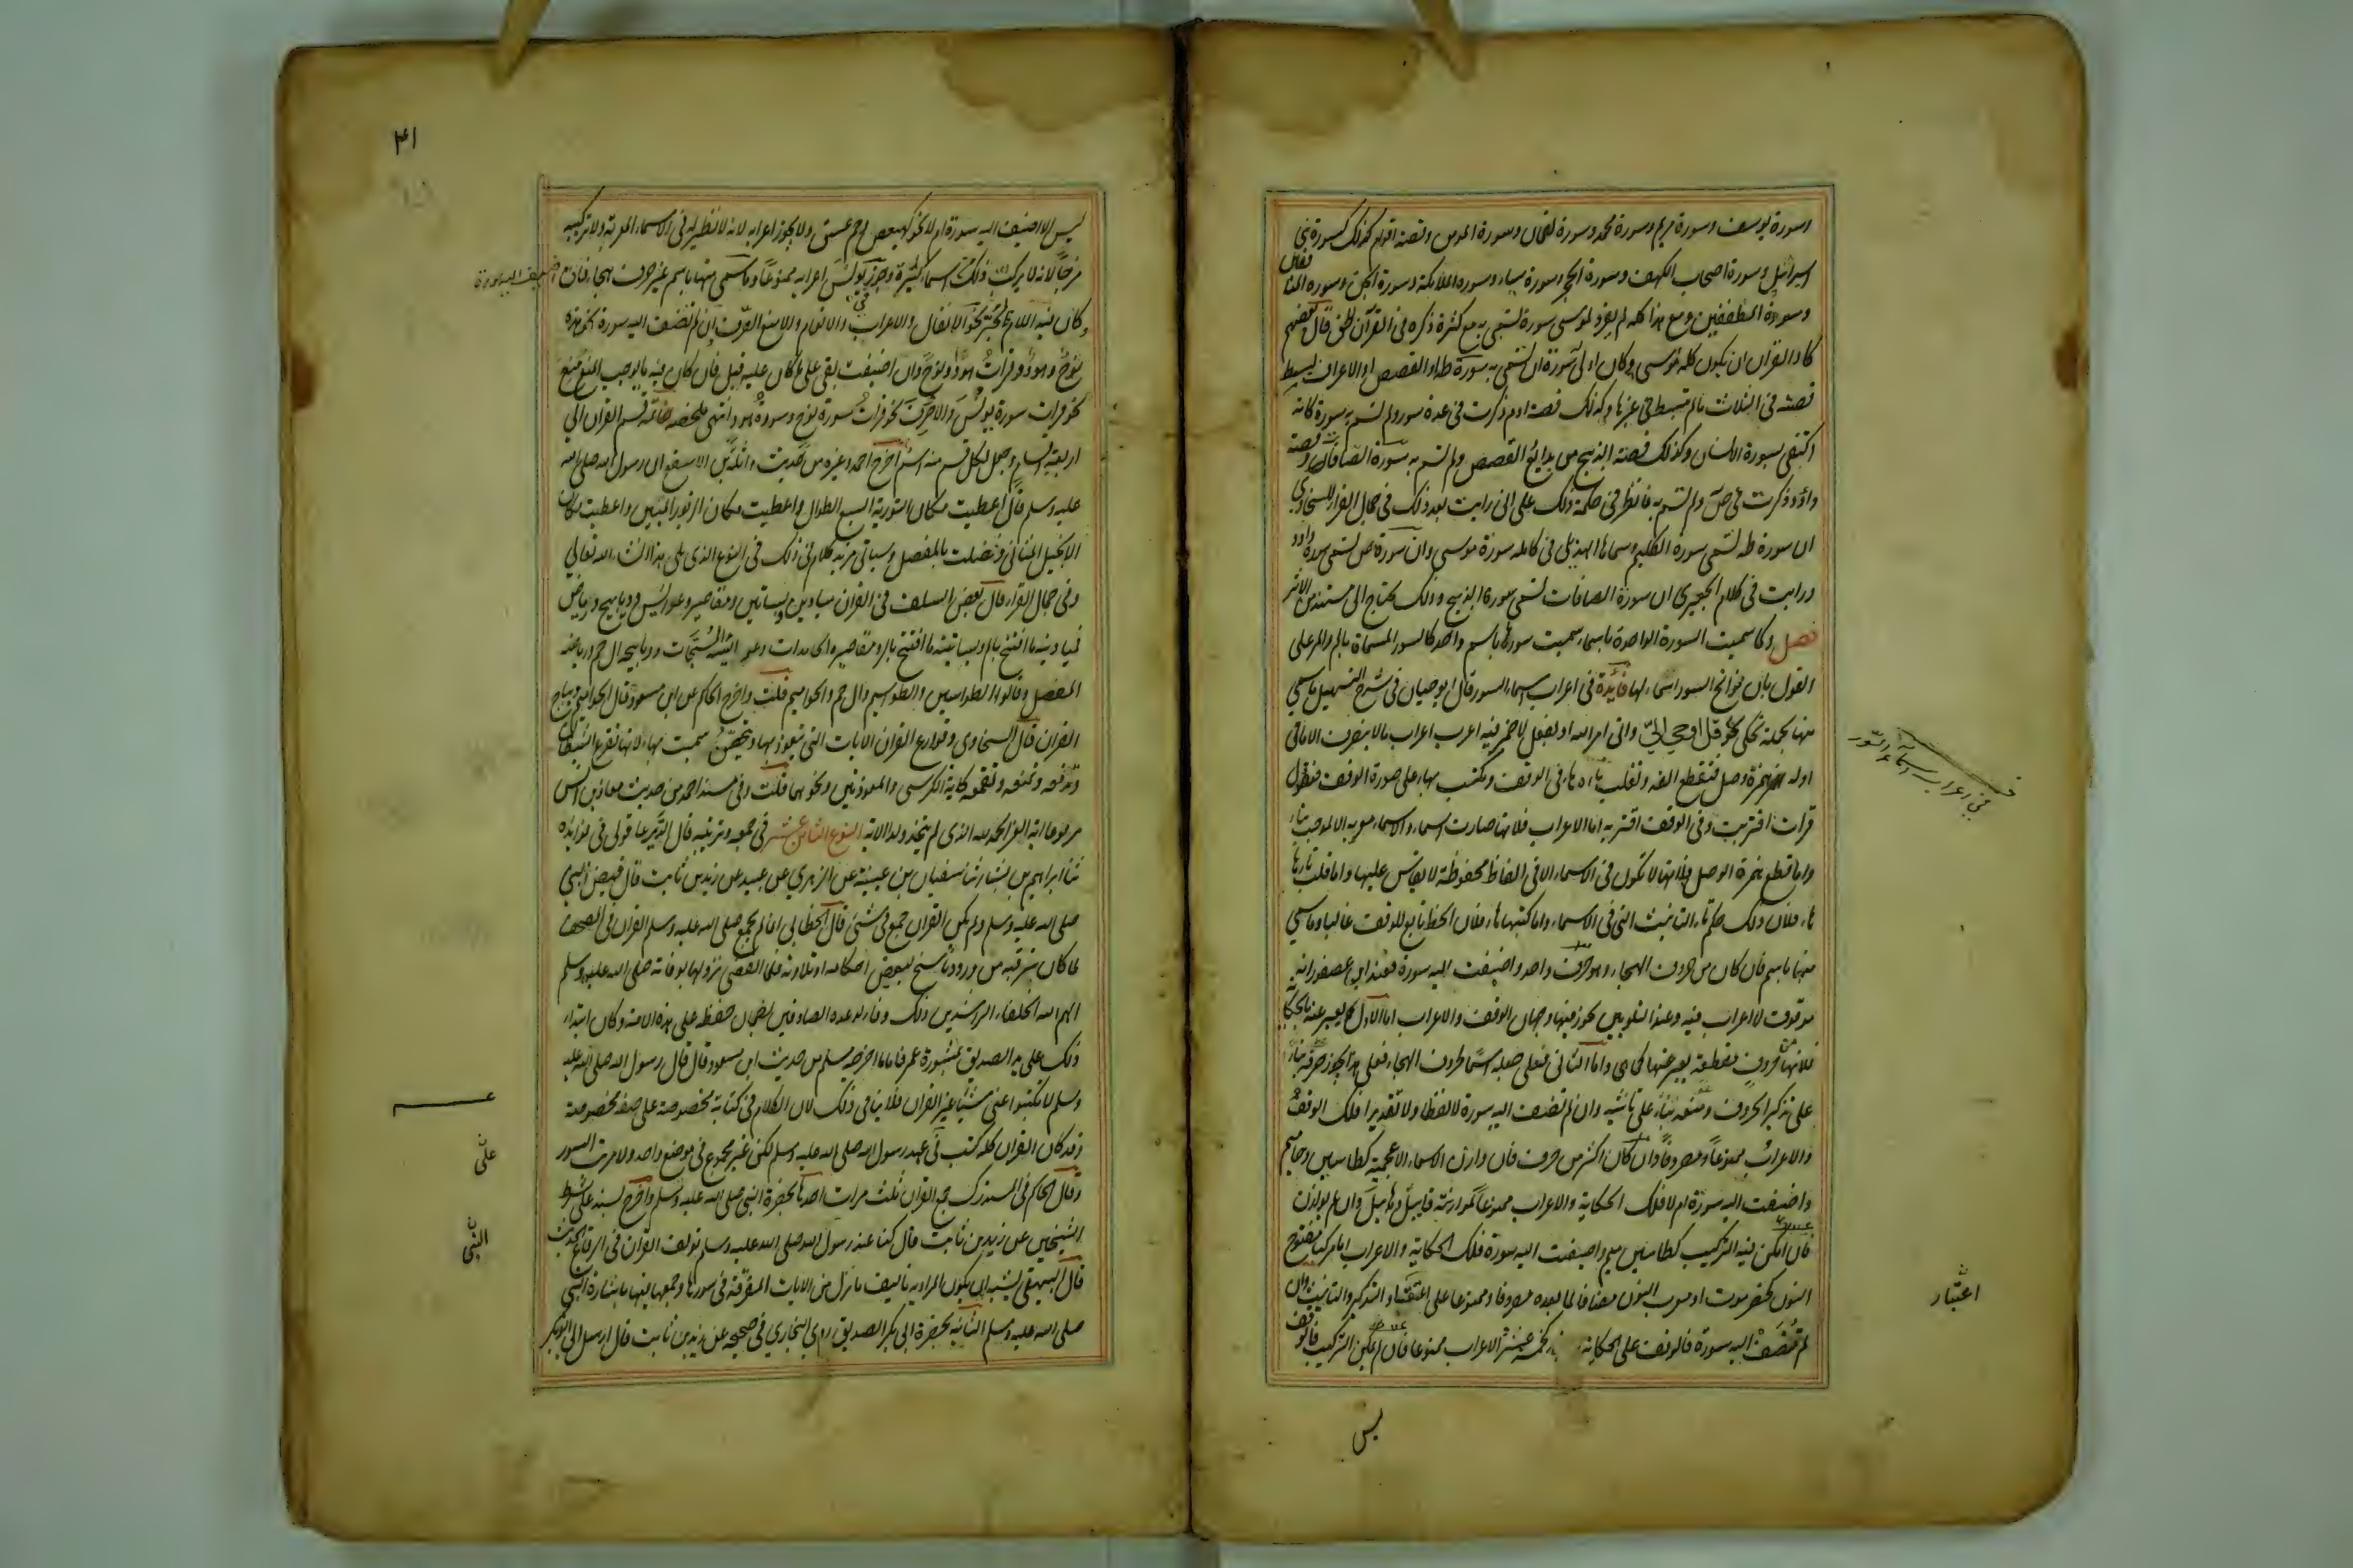 وسورة يوسف وسورة مريم وسورة محمد وسورة لقمان وسورة المومن وقصة اقوام كذلك كسورة بني
اسرائيل وسورة اصحاب الكهف وسورة الحجر وسورة سباء وسورة الملائكة وسورة الجن وسورة المنافقين
وسورة المطففين ومع هذا كله لم يفرد لموسى سورة تسمى به مع كثرة ذكره في القرآن حتى قال بعضهم
كاد القرآن ان يكون كله موسى وكان اولى سورة ان تسمى به سورة طه او القصص او الاعراف لبسط
قصته في الثلاث ما لم تبسط في غيرها وكذلك قصة ادم ذكرت في عدة سور ولم تسم به سورة كانه
اكتفى بسورة الانسان وكذلك قصة الذبيح من بدايع القصص ولم تسم به سورة الصافات وقصة
داؤد ذكرت في ص ولم تسم به فانظر في حكمة ذلك على انى رايت بعد ذلك في جمال القراء للسخاوي
ان سورة طه تسمى سورة الكليم وسماها الهذلي في كامله سورة موسى وان سورة ص تسمى سورة داود
ورايت في كلام الجعبري ان سورة الصافات تسمى سورة الذبيح وذلك يحتاج الى مستند من الاثر
فصل وكما سميت السورة الواحدة باسماء سميت سور باسم واحد كالسور المسماة بالم والر على
القول بان فواتح السور اسماء لها فائدة في اعراب اسماء السور قال ابو حيان في شرح التسهيل ما سمي
منها بجملة تحكى نحو قل اوحي الي واتى امر الله او بفعل لا ضمير فيه اعرب اعراب ما لا ينصرف الا ما في
اوله همزة وصل فتقطع الفه وتقلب تاءه هاء في الوقف وتكتب بهاء على صورة الوقف فتقول
قرات اقتربت وفي الوقف اقتربه اما الاعراب فلانها صارت اسماء والاسماء معربة الا لموجب بناء
واما قطع همزة الوصل فلانها لا تكون في الاسماء الا في الفاظ محفوظة لا يقاس عليها واما قلب تاءها
هاء فلان ذلك حكم تاء التانيث التي في الاسماء واما كتبها هاء فلان الخط تابع للوقف غالبا وما سمي
منها باسم فان كان من حروف الهجاء وهو حرف واحد واضيفت اليه سورة فعند ابن عصفور انه
موقوف لا اعراب فيه وعند الشلوبين يجوز فيها وجهان الوقف والاعراب اما الاول ويعبر عنه بالحكاية
فلانها حروف مقطعة يعبر عنها كما هي واما الثاني فعلى جعله اسما لحروف الهجاء فعلى هذا يجوز صرفه بناء
على تذكير الحروف ومنعه بناء على تانيثه وان لم تضف اليه سورة لا لفظا ولا تقديرا فلك الوقف
والاعراب ممنوعا ومصروفا وان كان اكثر من حرف فان وازن الاسماء الاعجمية كطاسين وحاميم
واضيفت اليه سورة ام لا فلك الحكاية والاعراب ممنوعا لموازنة قابيل وهابيل وان لم يوازن
فان امكن فيه التركيب كطاسين ميم واضيفت اليه سورة فلك الحكاية والاعراب اما مركبا مفتوح
النون كحضرموت او معرب النون مضافا لما بعده مصروفا وممنوعا على اعتقاد التذكير والتانيث وان
لم تضف اليه سورة فالوقف على الحكاية كخمسة عشر الاعراب ممنوعا فان لم يمكن التركيب فالوقف
ليس
في اعراب اسماء السور
اعتبار
٤١
ليس الا اضيفت اليه سورة ام لا نحو كهيعص وحم عسق ولا يجوز اعرابه لانه لا نظير له في الاسماء المعربة ولا تركيبه
مزجا لانه لا يركب كذلك اسماء كثيرة وجوز يونس اعرابه ممنوعا وما سمى منها باسم غير حرف هجاء فان
وكان فيه اللام انجر نحو الانفال والاعراف والانعام والا منع الصرف ان لم تضف اليه سورة نحو هذه
نوح وهود وقرات هود ونوح وان اضيفت بقى على ما كان عليه قبل فان كان فيه ما يوجب المنع منع
نحو قرات سورة يونس والا صرف نحو قرات سورة نوح وسورة هود انتهى ملخصه خاتمة قسم القران الى
اربعة اقسام وجعل لكل قسم منه اسم اخرج احمد وغيره من حديث واثلة بن الاسقع ان رسول الله صلى الله
عليه وسلم قال اعطيت مكان التورية السبع الطوال واعطيت مكان الزبور المئين واعطيت مكان
الانجيل المثاني وفضلت بالمفصل وسياتي مزيد كلام في ذلك في النوع الذي يلي هذا ان شاء الله تعالى
وفي جمال القراء قال بعض السلف في القران ميادين وبساتين ومقاصير وعرائس وديابيج ورياض
فميادينه ما افتتح بالم وبساتينه ما افتتح بالر ومقاصيره الحامدات وعرائسه المسبحات وديابيجه ال حم ورياضه
المفصل وقالوا الطواسين والطواسيم وال حم والحواميم قلت واخرج الحاكم عن ابن مسعود قال الحواميم ديباج
القران قال السخاوي وقوارع القران الايات التي يتعوذ بها ويتحصن سميت بها لانها تقرع الشيطان
وتدفعه وتقمعه كاية الكرسي والمعوذتين ونحوهما قلت وفي مسند احمد من حديث معاذ بن انس
مرفوعا اية العز الحمد لله الذي لم يتخذ ولدا الاية النوع الثامن عشر في جمعه وترتيبه قال الديرعاقولي في فوائده
ثنا ابراهيم بن بشار ثنا سفيان بن عيينة عن الزهري عن عبيد عن زيد بن ثابت قال قبض النبي
صلى الله عليه وسلم ولم يكن القران جمع في شئ قال الخطابي انما لم يجمع صلى الله عليه وسلم القران في المصحف
لما كان يترقبه من ورود ناسخ لبعض احكامه او تلاوته فلما انقضى نزولها بوفاته صلى الله عليه وسلم
الهم الله الخلفاء الراشدين ذلك وفاء لوعده الصادق بضمان حفظه على هذه الامة وكان ابتداء
ذلك على يد الصديق بمشورة عمر فاما ما اخرجه مسلم من حديث ابي سعيد قال قال رسول الله صلى الله عليه
وسلم لا تكتبوا عني شيئا غير القران فلا ينافي ذلك لان الكلام في كتابة مخصوصة على صفة مخصوصة
وقد كان القران كله كتب في عهد رسول الله صلى الله عليه وسلم لكن غير مجموع في موضع واحد ولا مرتب السور
وقال الحاكم في المستدرك جمع القران ثلث مرات احدها بحضرة النبي صلى الله عليه وسلم واخرج بسند على شرط
الشيخين عن زيد بن ثابت قال كنا عند رسول الله صلى الله عليه وسلم نولف القران في الرقاع الحديث
قال البيهقي يشبه ان يكون المراد به تاليف ما نزل من الايات المتفرقة في سورها وجمعها فيها باشارة النبي
صلى الله عليه وسلم الثانية بحضرة ابي بكر الصديق روى البخاري في صحيحه عن زيد بن ثابت قال ارسل الي ابو بكر
على
النبي